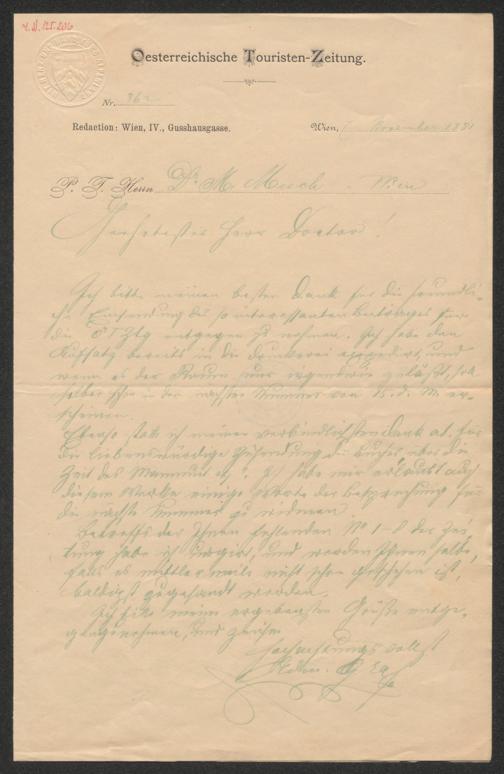 Oesterreichische Touristen-Zeitung.
Nr.
Redaction: Wien, IV., Gusshausgasse.
Wien, November 1881
P. T. Herrn Dr. M. Much. Wien
Geehrtester Herr Doctor!
Ich bitte meinen besten Dank für die freundli-
che Einsendung des so interessanten Beitrages für
die Ö T. Ztg entgegen zu nehmen. Ich habe den
Aufsatz bereits in die Druckerei expedirt, und
wenn es der Raum nur irgendwie zuläßt, soll
selber schon in der nächsten Nummer vom 15. d. M. er-
scheinen.
Ebenso statte ich meinen verbindlichsten Dank ab, für
die liebenswürdige Zusendung des Buches über die
Zeit des Mammut. Ich habe mir erlaubt auch
diesem Werke einige Worte der Besprechung für
die nächste Nummer zu widmen.
Betreffs der Ihnen fehlenden No 1-8 der Zei-
tung habe ich, und werden Ihnen selbe,
falls es mittlerweile nicht schon geschehen ist,
baldigst zugesandt werden.
Ich bitte meine ergebensten Grüße entge-
genzunehmen, und zeichne
hochachtungsvollst
Edm. Graf